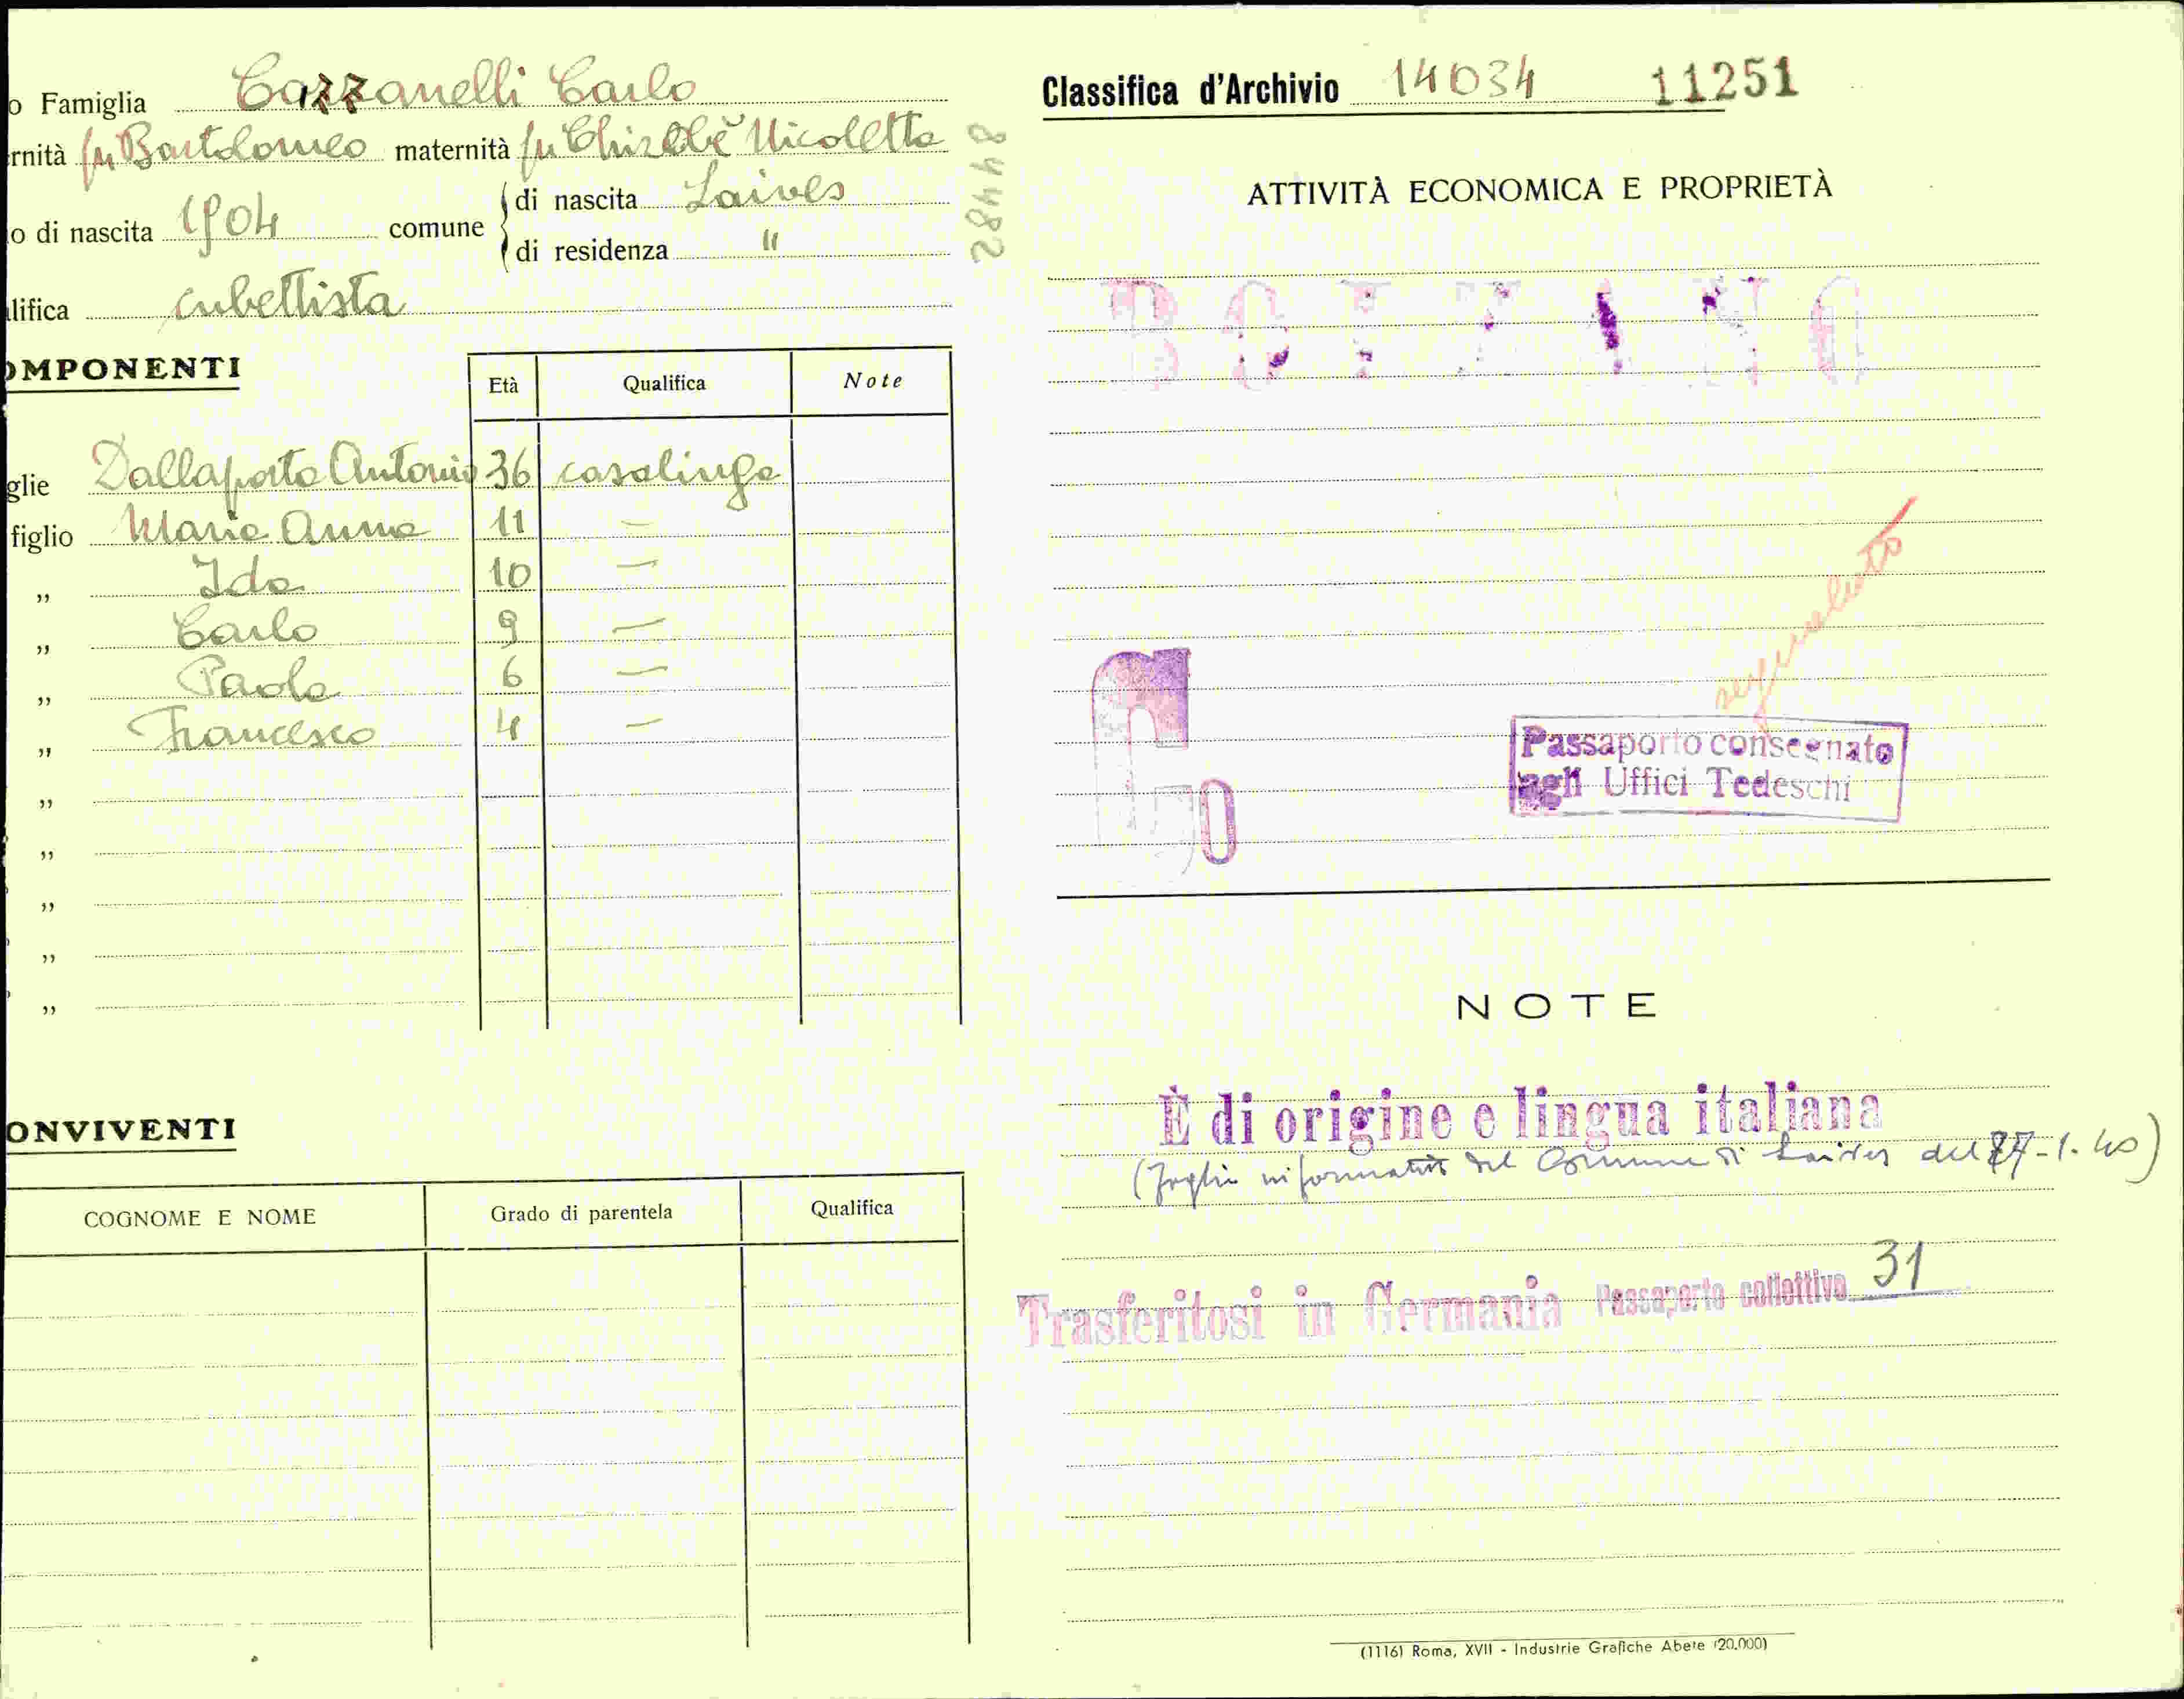 o Famiglia Cazzanelli Carlo
rnità fu Bartolomeo maternità fu Nicoletta
o di nascita 1904 comune di nascita Laives
di residenza "
lifica cubettista
OMPONENTI
Età Qualifica Note
glie Dallaporta Antonia 36 casalinga
figlio Maria Anna 11 —
„ Ida 10 —
„ Carlo 9 —
„ Paola 6 —
„ Francesco 4 —
„
„
„
„
„
ONVIVENTI
COGNOME E NOME Grado di parentela Qualifica
84482
Classifica d'Archivio 14034 11251
ATTIVITÀ ECONOMICA E PROPRIETÀ
BOLZANO
Passaporto consegnato
agli Uffici Tedeschi
NOTE
È di origine e lingua italiana
(Foglio informativo del Comune di Laives del 27-1-40)
Trasferitosi in Germania Passaporto collettivo 31
(1116) Roma, XVII - Industrie Grafiche Abete (20.000)